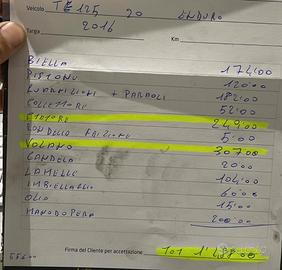 Veicolo TE 125 20 ENDURO
Targa 2016 Km
BIELLA 174,00
PISTONE 120,00
GUARNIZIONI + PARAOLI 182,00
COLLETTORE 52,00
STATORE 249,00
CONDELLO FRIZIONE 5,00
VOLANO 307,00
CANDELA 20,00
LAMELLE 104,00
IMBIELLAGGIO 60,00
OLIO 15,00
MANODOPERA 200,00
Firma del Cliente per accettazione TOT 1'488,00